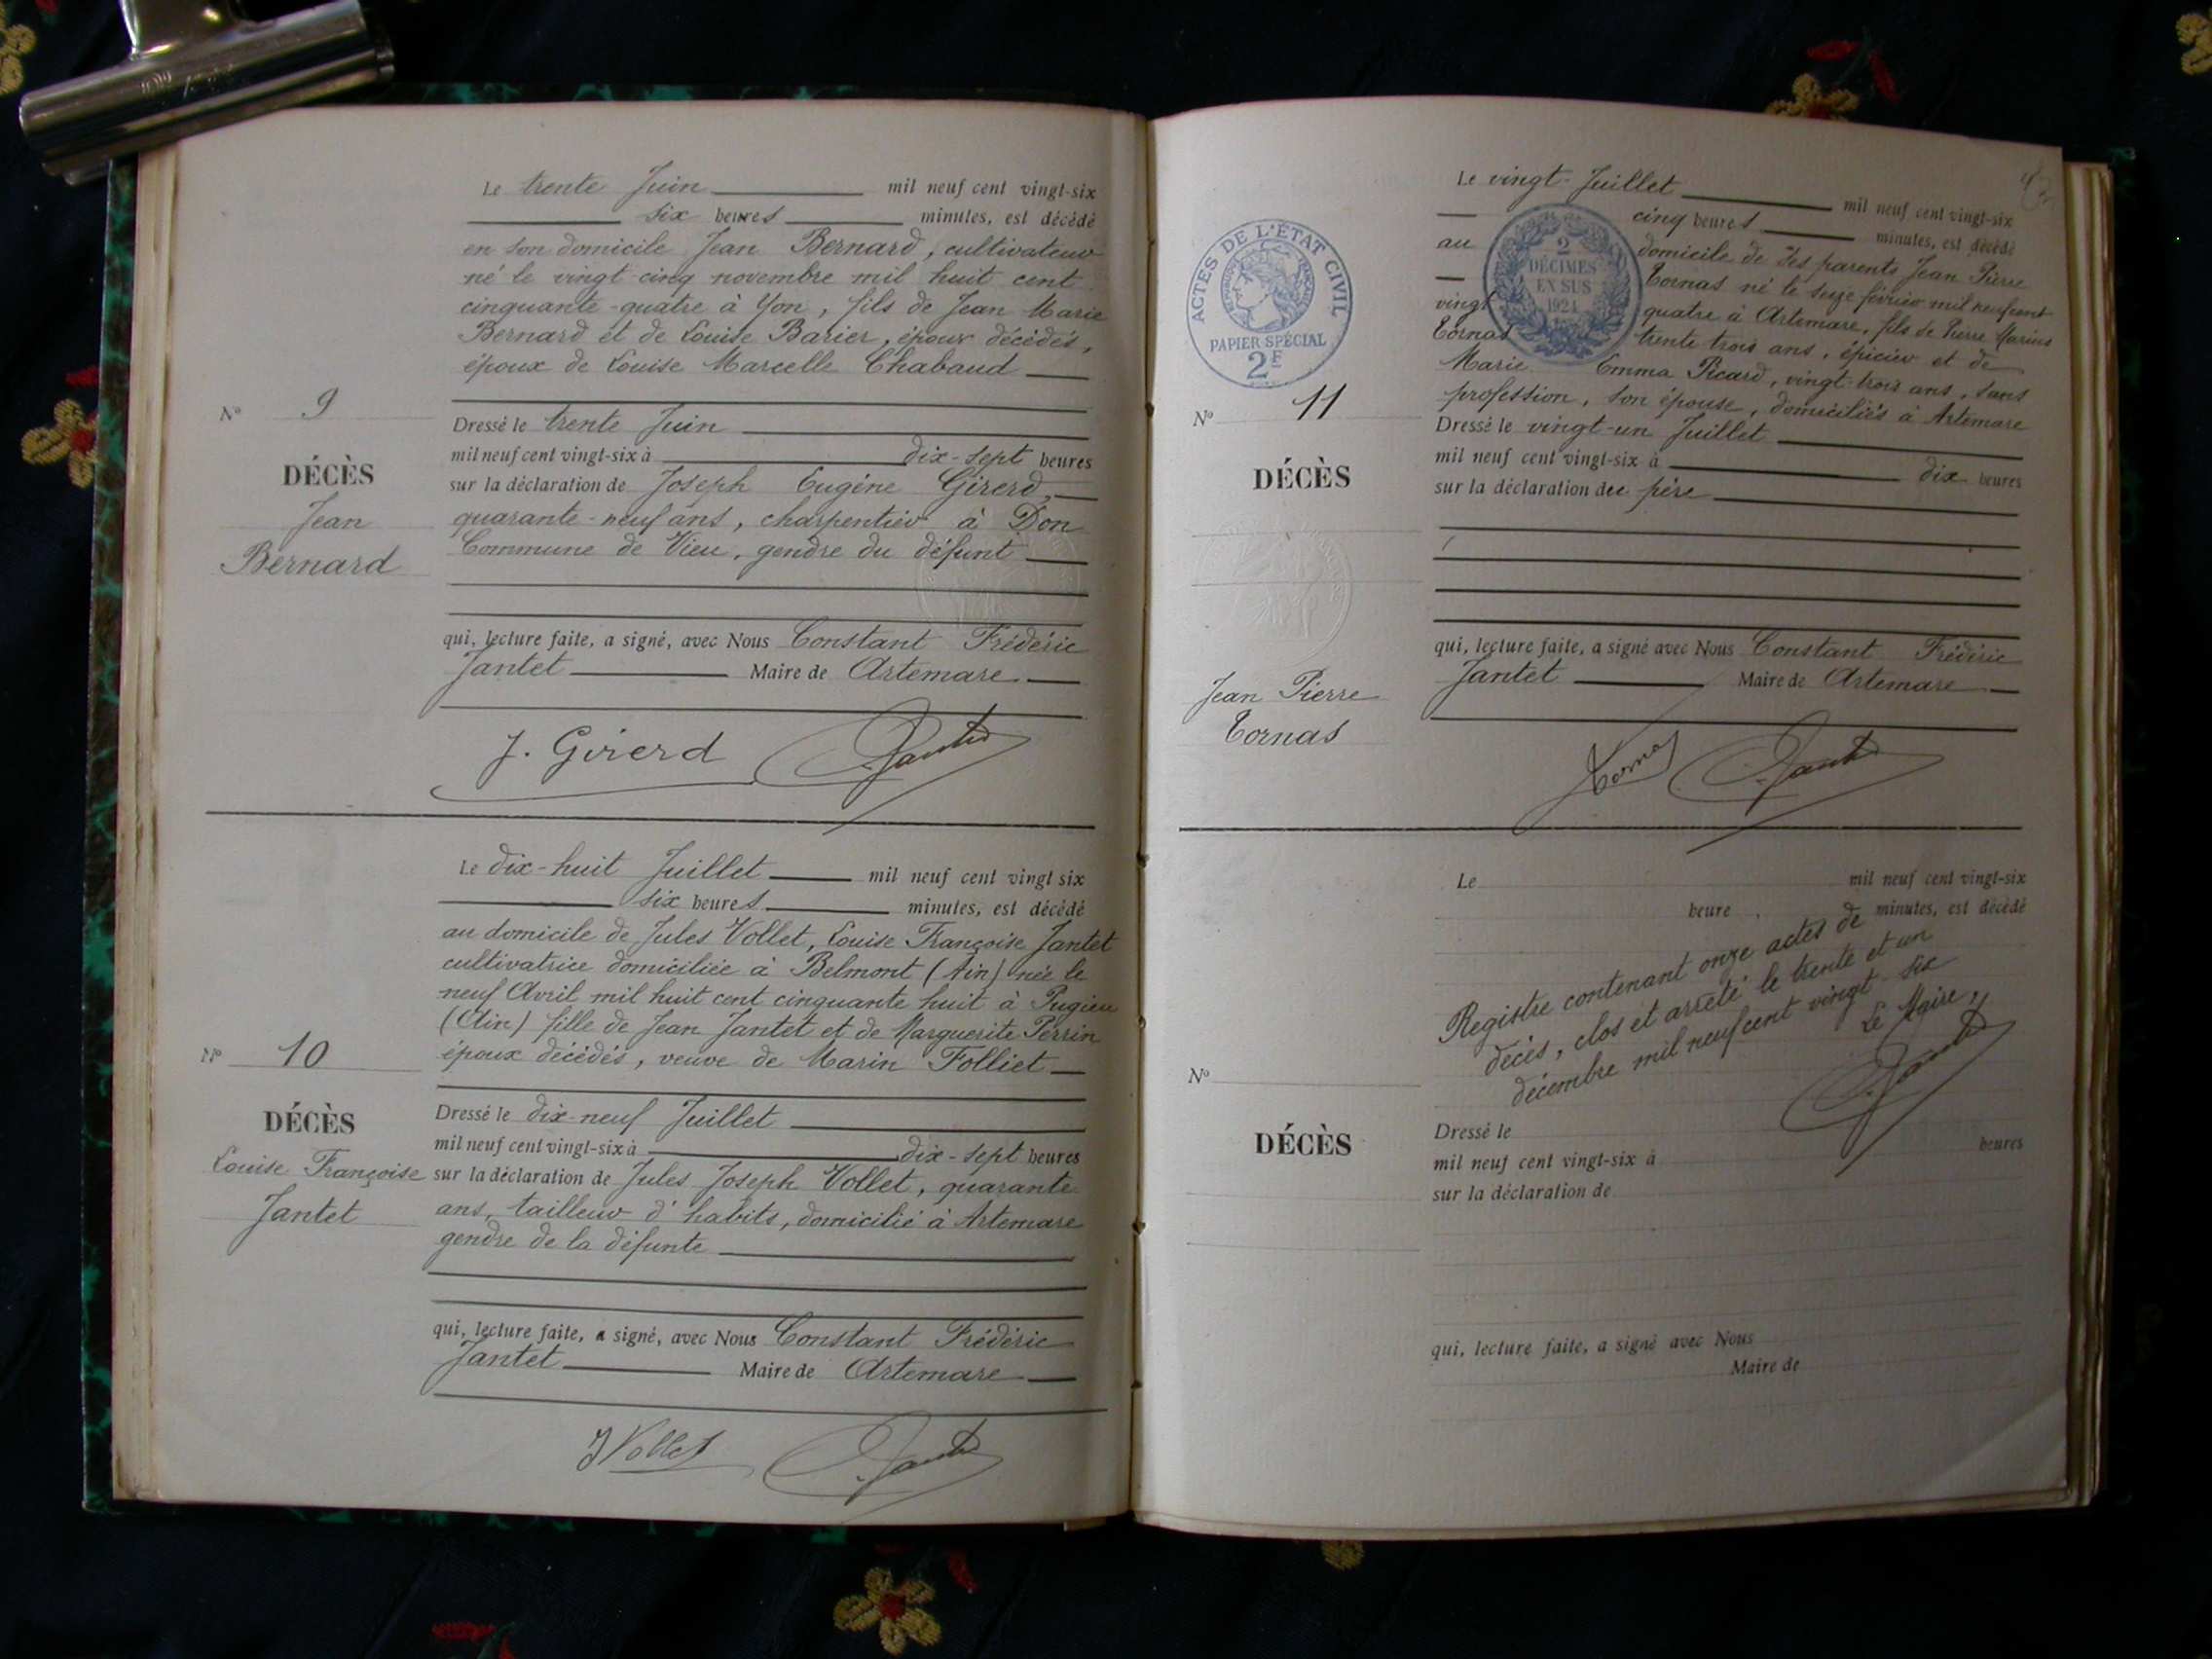 Le trente Juin mil neuf cent vingt-six
six heures minutes, est décédé
en son domicile Jean Bernard, cultivateur
né le vingt cinq novembre mil huit cent
cinquante-quatre à Yon, fils de Jean Marie
Bernard et de Louise Barier, époux décédés,
époux de Louise Marcelle Chabaud
N° 9
DÉCÈS
Jean
Bernard
Dressé le trente Juin
mil neuf cent vingt-six à dix-sept heures
sur la déclaration de Joseph Eugéne Girerd,
quarante-neuf ans, charpentier à Don
Commune de Vieu, gendre du défunt
qui, lecture faite, a signé, avec Nous Constant Frédéric
Jantet Maire de Artemare
J. Girerd Jantet
Le dix-huit Juillet mil neuf cent vingt six
six heures minutes, est décédé
au domicile de Jules Vollet, Louise Françoise Jantet
cultivatrice domiciliée à Belmont (Ain) née le
neuf Avril mil huit cent cinquante huit à Pugieu
(Ain) fille de Jean Jantet et de Marguerite Perrin
époux décédés, veuve de Marin Folliet
N° 10
DÉCÈS
Louise Françoise
Jantet
Dressé le dix-neuf Juillet
mil neuf cent vingt-six à dix-sept heures
sur la déclaration de Jules Joseph Vollet, quarante
ans, tailleur d'habits, domicilié à Artemare
gendre de la défunte
qui, lecture faite, a signé, avec Nous Constant Frédéric
Jantet Maire de Artemare
J Vollet Jantet
ACTES DE L'ÉTAT CIVIL
RÉPUBLIQUE FRANÇAISE
PAPIER SPÉCIAL
2F
2
DÉCIMES
EN SUS
1921
Le vingt-Juillet mil neuf cent vingt-six
cinq heures minutes, est décédé
au domicile de ses parents Jean Pierre
Tornas né le seize février mil neuf cent
vingt quatre à Artemare, fils de Pierre Marius
Tornas trente trois ans, épicier et de
Marie Emma Picard, vingt-trois ans, sans
profession, son épouse, domiciliés à Artemare
N° 11
DÉCÈS
Jean Pierre
Tornas
Dressé le vingt-un Juillet
mil neuf cent vingt-six à dix heures
sur la déclaration du père
qui, lecture faite, a signé avec Nous Constant Frédéric
Jantet Maire de Artemare
Tornas Jantet
Le mil neuf cent vingt-six
heure minutes, est décédé
Registre contenant onze actes de
décès, clos et arrêté le trente et un
décembre mil neuf cent vingt-six
Le Maire,
Jantet
N°
DÉCÈS
Dressé le
mil neuf cent vingt-six à heures
sur la déclaration de
qui, lecture faite, a signé avec Nous
Maire de